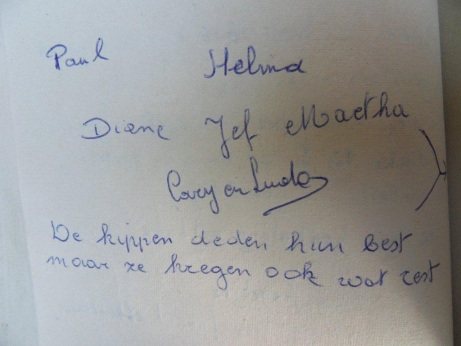 Paul Helma
Diane Jef Martha
Cary en Luda
De kippen deden hun best
maar ze kregen ook wat rest